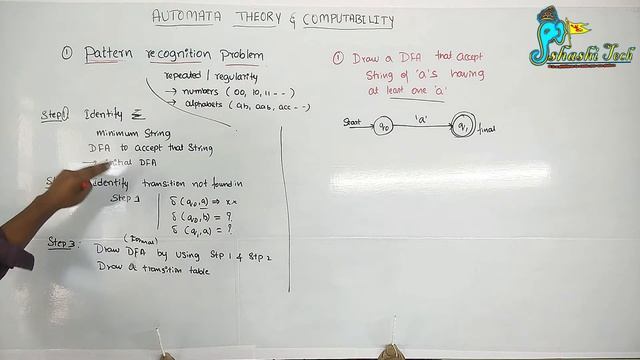 AUTOMATA THEORY & COMPUTABILITY
① Pattern recognition problem
repeated / regularity
→ numbers (00, 10, 11 - - )
→ alphabets (ab, aab, acc - - )
Step① Identify Σ
minimum String
DFA to accept that String
initial DFA
Identify transition not found in
Step 1
δ (q0, a) ⇒ xx
δ (q0, b) = ?
δ (q1, a) = ?
Step 3: (Formal)
Draw DFA by using Stp 1 & Stp 2
Draw transition table
① Draw a DFA that accept
String of 'a's having
at least one 'a'
Start q0 'a' q1 final
Shashi Tech